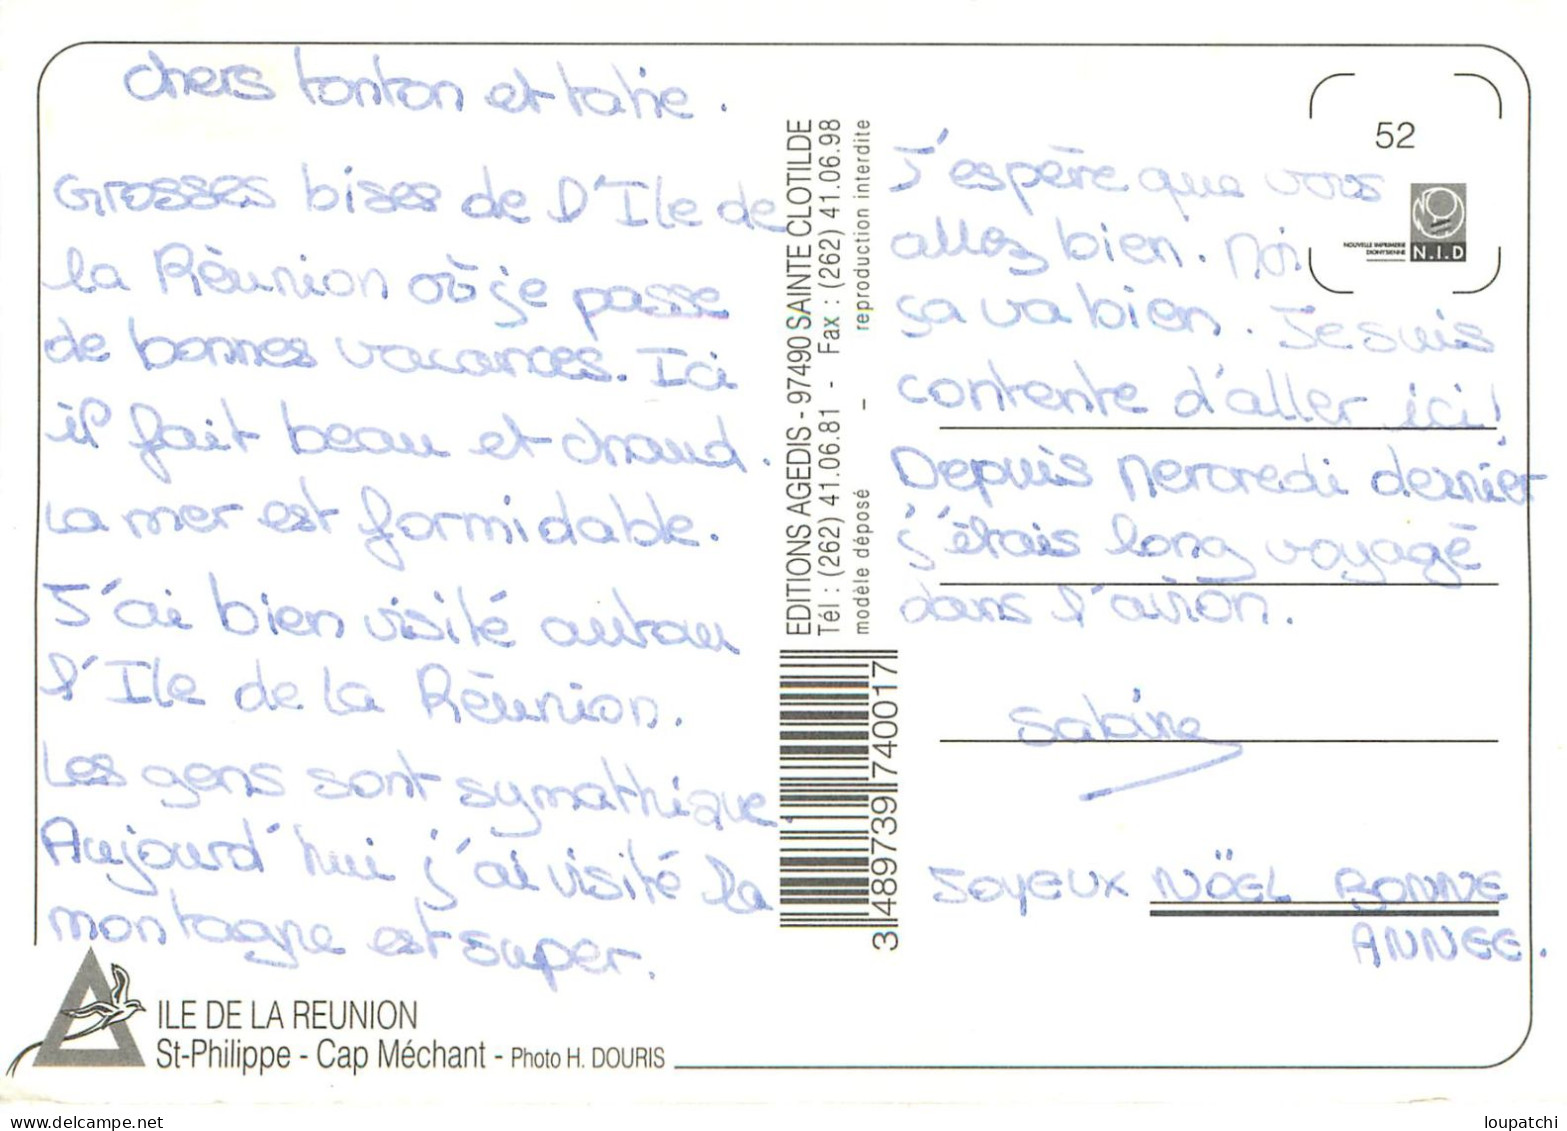 chers tonton et tatie.
Grosses bises de l'Ile de
la Réunion où je passe
de bonnes vacances. Ici
il fait beau et chaud.
La mer est formidable.
J'ai bien visité autau
l'Ile de la Réunion.
Les gens sont symathique.
Aujourd'hui j'ai visité la
montagne est super.
ILE DE LA REUNION
St-Philippe - Cap Méchant - Photo H. DOURIS
EDITIONS AGEDIS - 97490 SAINTE CLOTILDE
Tél : (262) 41.06.81 - Fax : (262) 41.06.98
modèle déposé - reproduction interdite
3 489739 740017
52
NOUVELLE IMPRIMERIE
DIONYSIENNE
N.I.D
J'espère que vous
allez bien. Moi
ça va bien. Je suis
contente d'aller ici!
Depuis Mercredi dernier
j'étais long voyagé
dans l'avion.
Sabine
JOYEUX NÖEL BONNE
ANNEE.
loupatchi